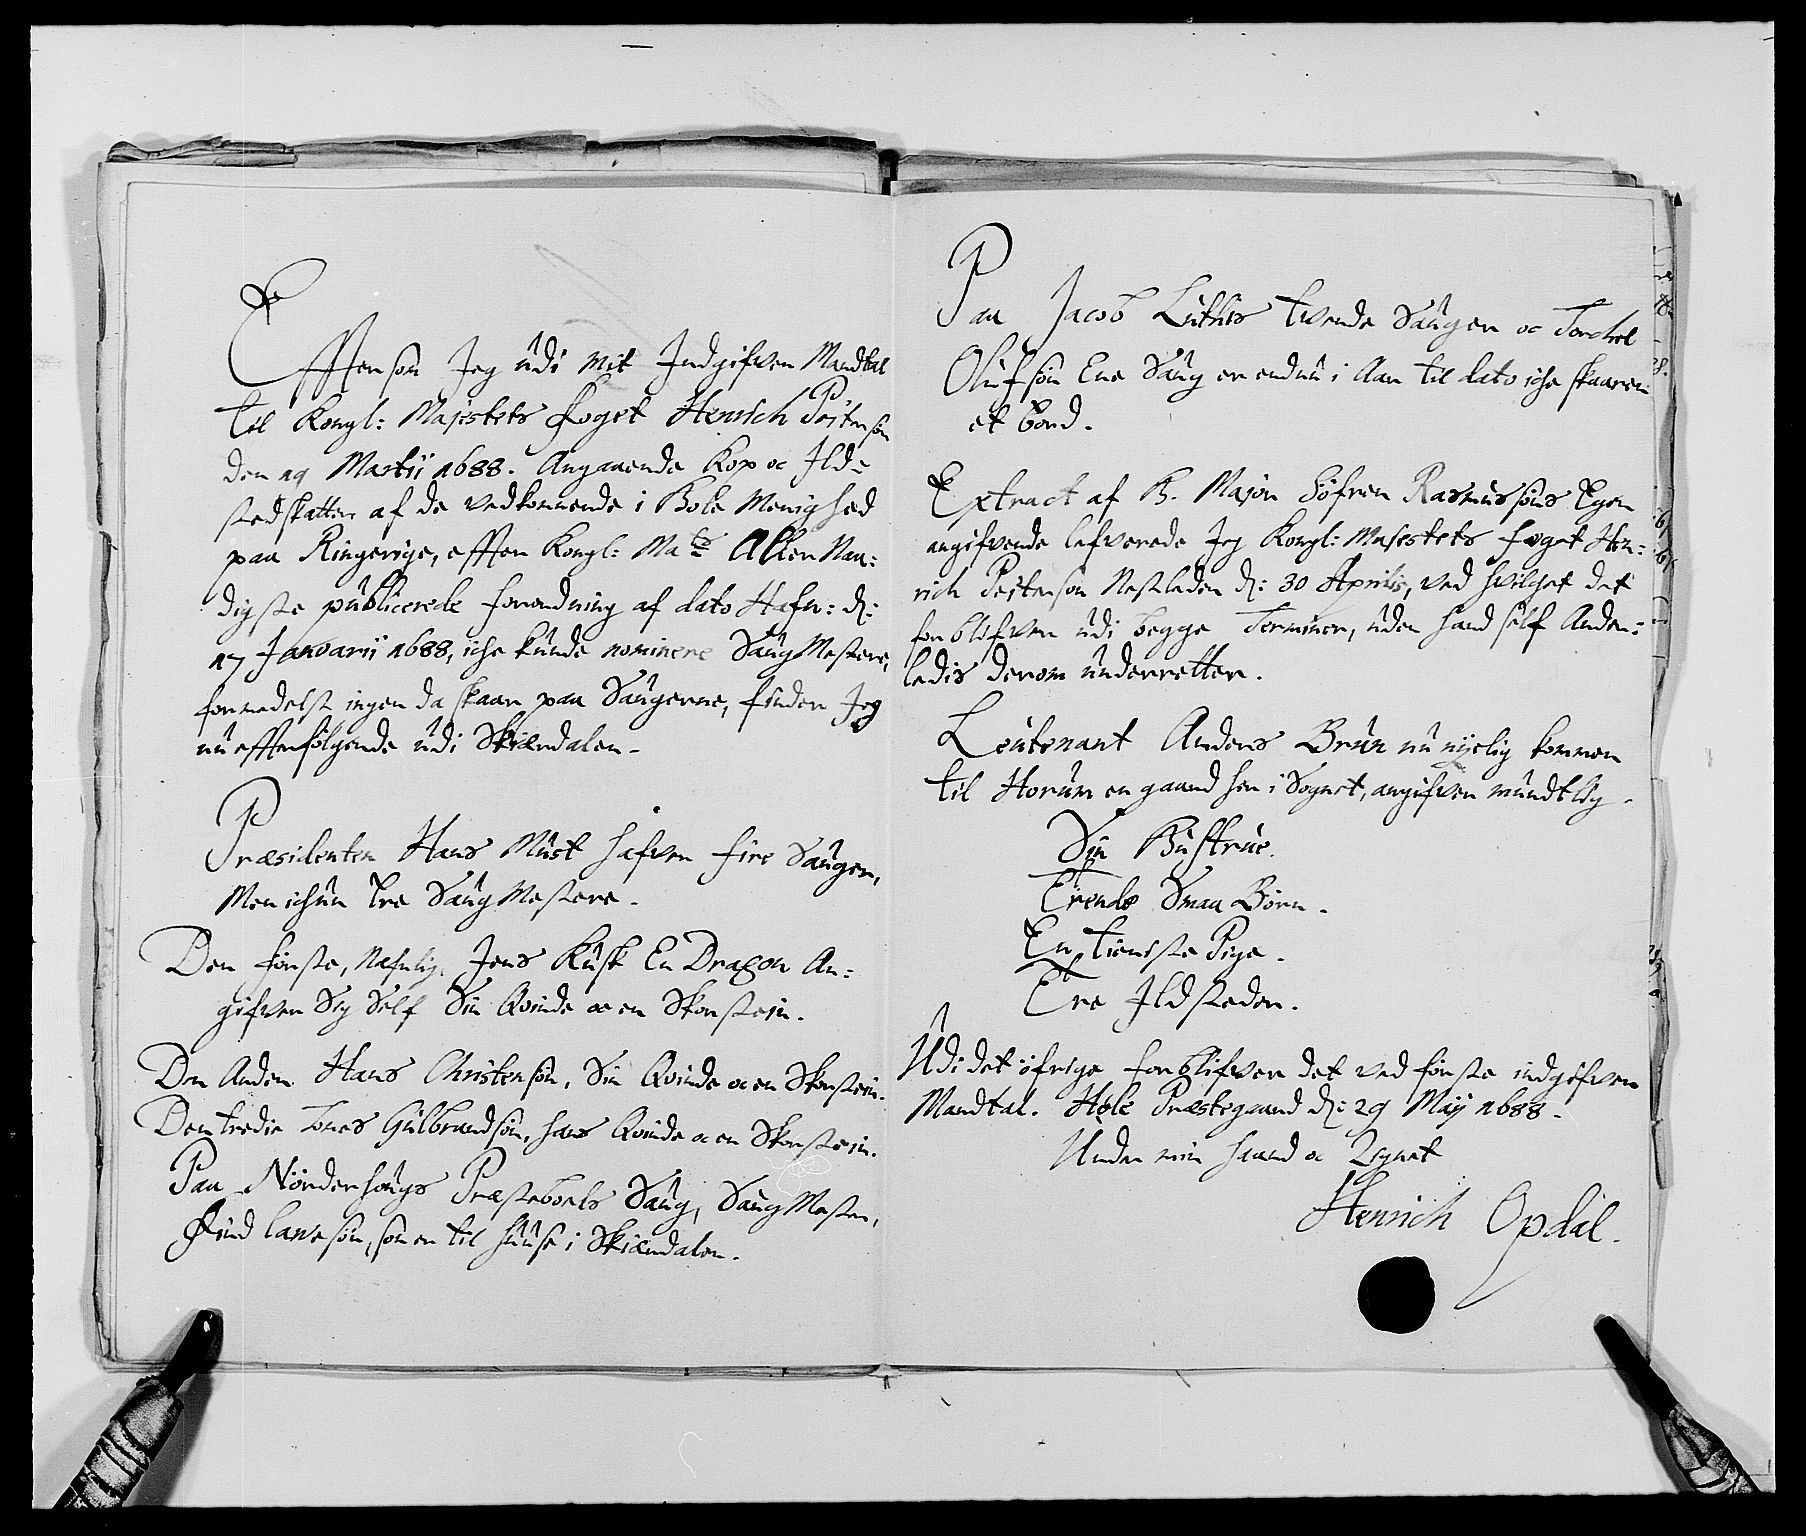 Efftersom Jeg udi mit Indgifven Mandtal
til Kongl: Majestets foget Henrich Pedersøn
den 19 Martii 1688. Angaaende Kop oc Ild-
stedskatten af de vedkommende i Hole Menighed
paa Ringerige, effter Kongl: Ma:ts Aller Naa:
digste publicerede forordning af dato Hafn: d:
17 Januarii 1688, iche kunde nominere Saug Mestere,
formedelst ingen da skaar paa Saugerne, finder Jeg
nu effterfølgende udi Skiærdalen-
Præsidenten Hans Must hafver fire Sauger,
Men ichun tre Saug Mestere.
Den første, Nafnlig. Jens Kusk En Dragon An:
gifver Sig Self Sin Qvinde oc en Skorstein.
Den Anden Hans Christensøn, Sin Qvinde oc en Skorstein.
Den tredie Tones Gulbrandsøn, hans Qvinde oc en Skorstein.
Paa Nørderhougs Præsteboels Saug, Saug Mester,
Øfind larssøn, som er til huuse i Skiærdalen.
Paa Jacob Luthes tvende Sauger oc Torchel
Olufsøn Ene Saug er endnu i Aar til dato iche skaaren
et bord.
Extract af H. Major Søfren Rasmussøns Egen
angifvende lefverede Jeg Kongl: Majestets foget Hen:
rich Pedersøn Nestleden d: 30 Aprilis, ved hvilchet det
forblifver udi begge Terminer, uden hand self Ander:
ledis derom underretter.
Leutenant Anders Brun nu nyelig kommen
til Horum en gaard her i Sognet, angifver mundtlig.
Sin Hustrue.
Trende Smaa Børn.
En tieniste Pige.
Tre Ildsteder.
Udi det øfrige forblifver det ved første indgifven
Mandtal. Hole Præstegaard d: 29 Maij 1688.
Under min haand oc Zignet
Henrich Opdal.